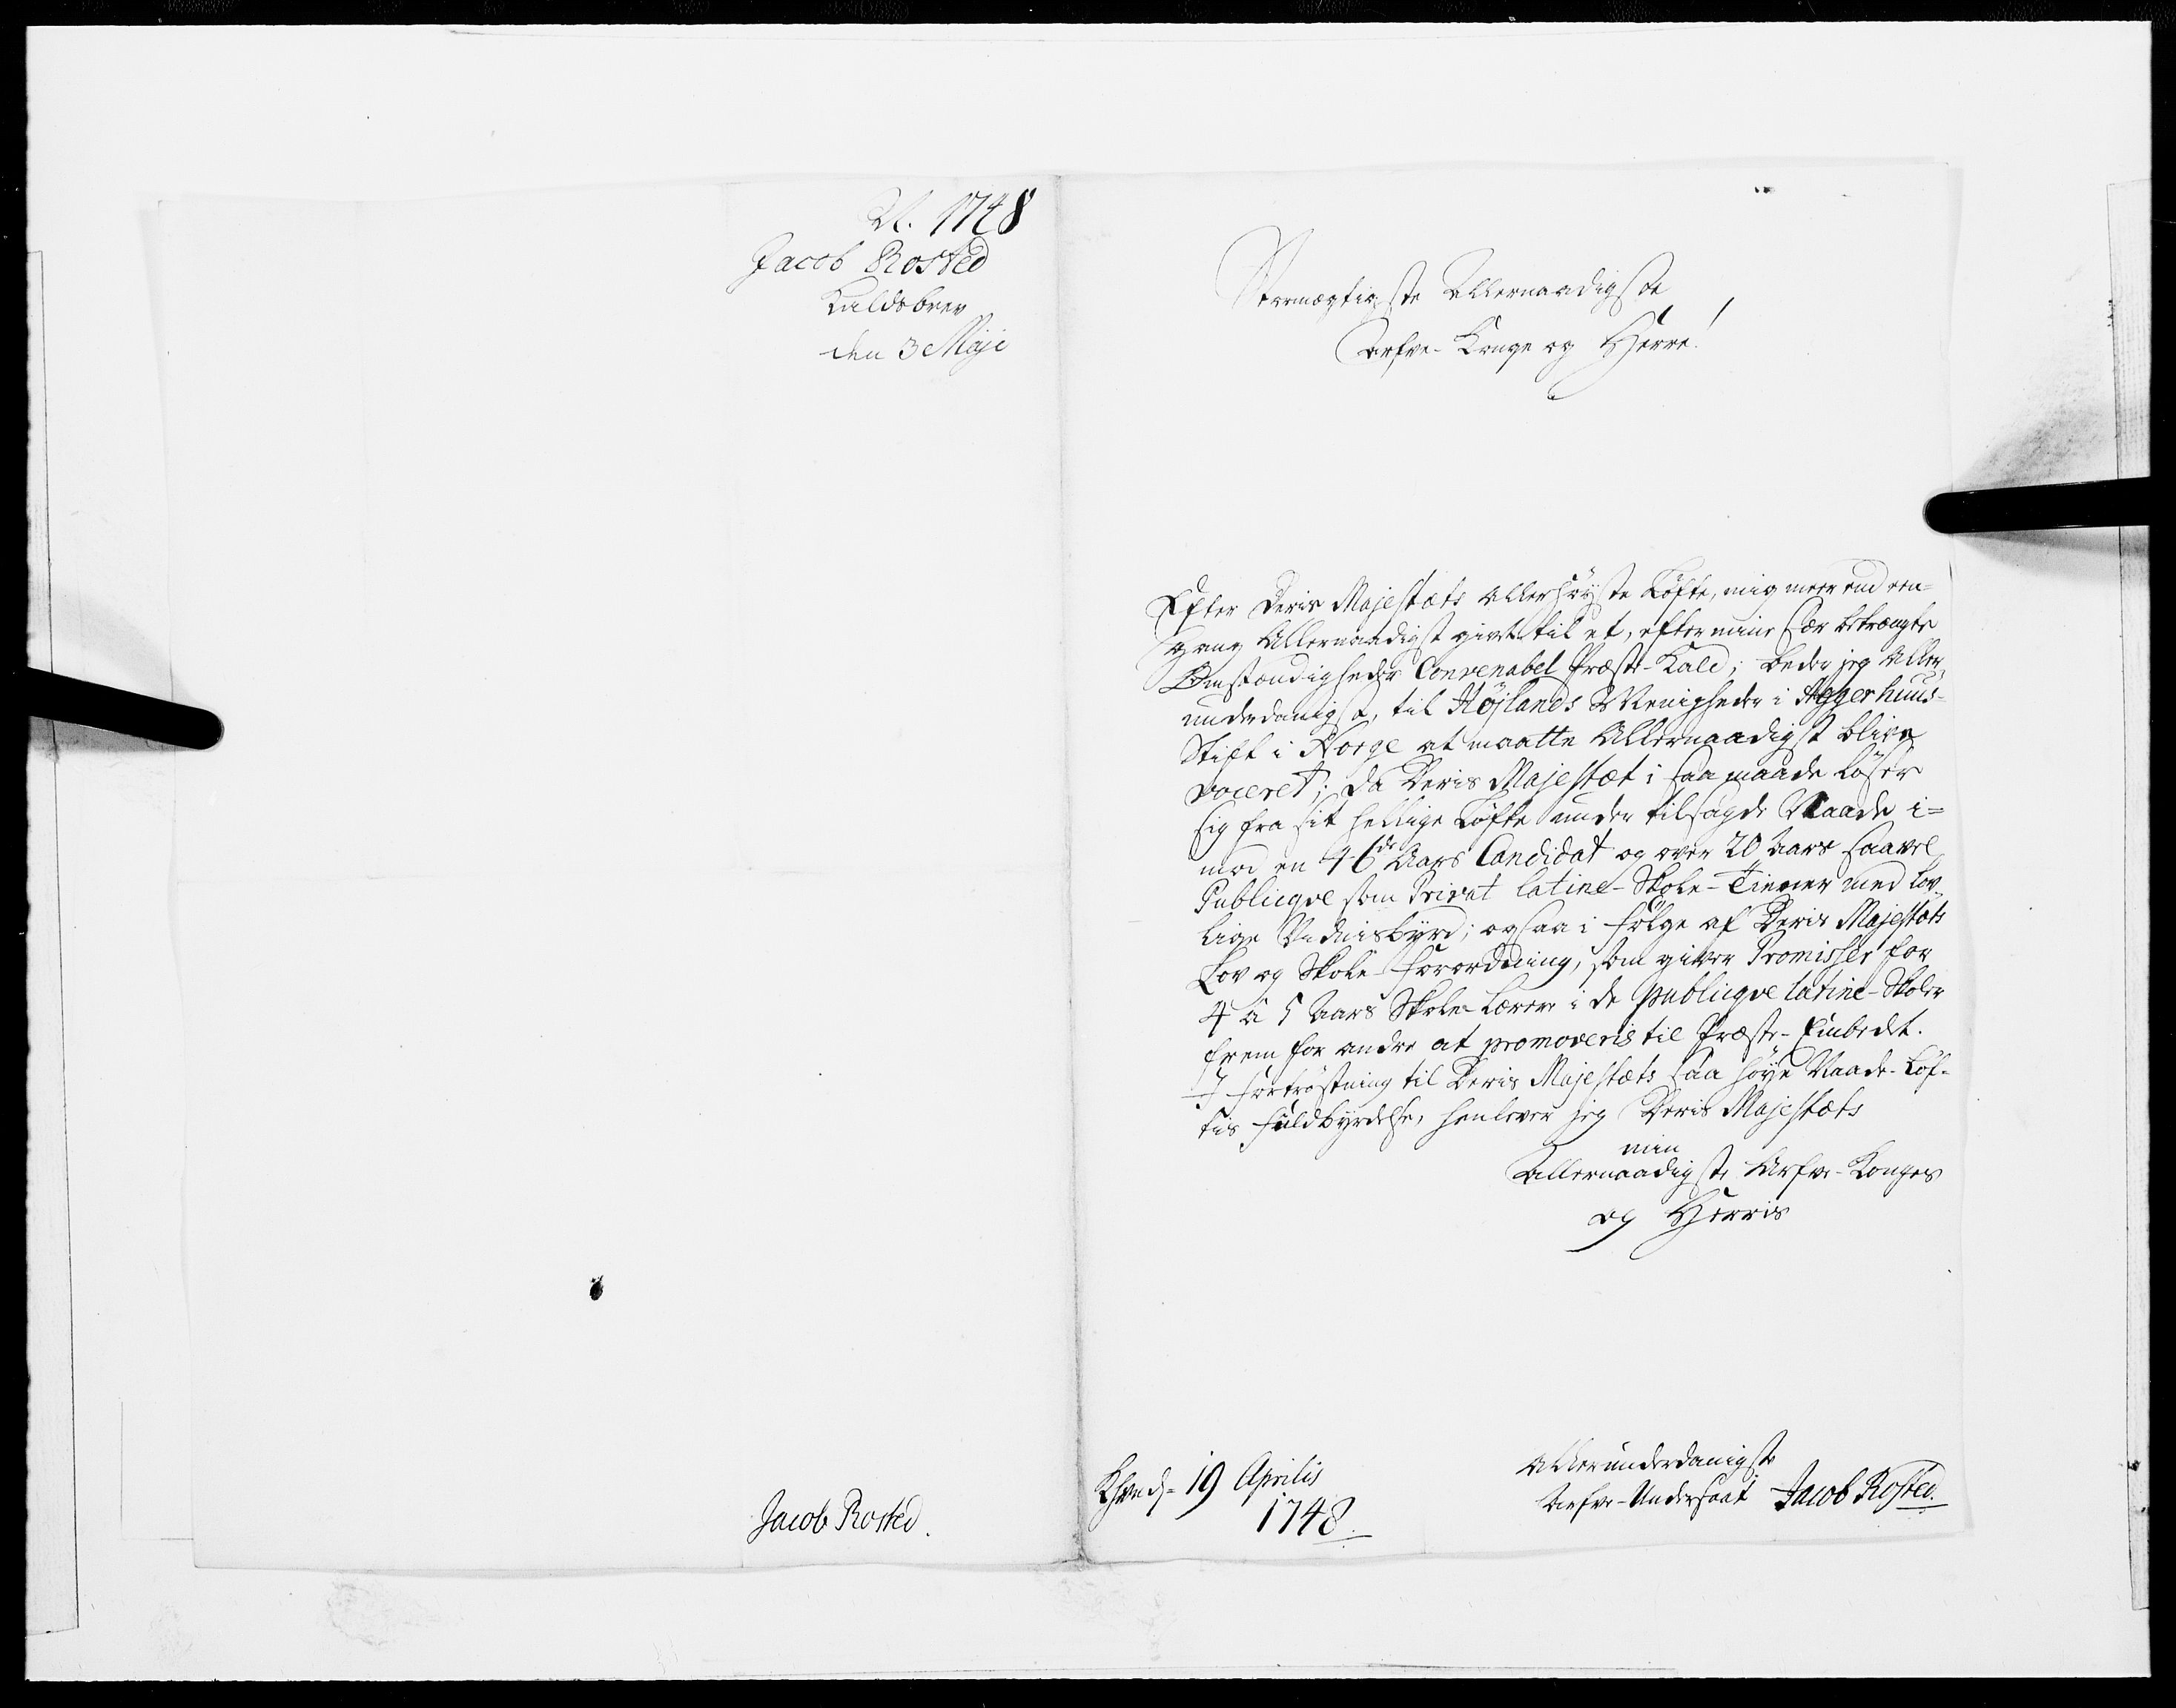 1748
Jacob Rosted
Kaldsbrev
den 3 Maji
Jacob Rosted.
Stormægtigste Allernaadigste
Arfve-Konge og Herre!
Efter Deris Majestæts Allerhöyste Löfte, mig meer end een-
gang Allernaadigst givet til et, efter mine betrængte
Omstændigheder Convenabel Præste-Kald; beder jeg Aller-
underdanigst, til Höjlands Menigheder i Aggerhuus-
Stift i Norge at maatte Allernaadigst blive
voceret; da Deris Majestæt i saa maade löser
sig fra sit hellige Löfte under tilsagde Naade i=
mod en 46de Aars Candidat og over 20 Aars saavel
Publiqve som Privat latine-Skole-Tiener med lov-
lige Vidnisbyrd; ogsaa i fölge af Deris Majestæts
Lov og Skole-Forordning, som giver Promisser for
4 â 5 Aars Skole-Lærere i de publiqve latine-Skoler
frem for andre at promoveris til Præste-Embedet.
I fortröstning til Deris Majestæts saa höye Naade-Löf-
tis fuldbyrdelse, henlever jeg Deris Majestæts
min
Allernaadigste Arfve-Konges
og Herris
19 Aprilis
1748.
Allerunderdanigste
Arfve-Undersaat Jacob Rosted.